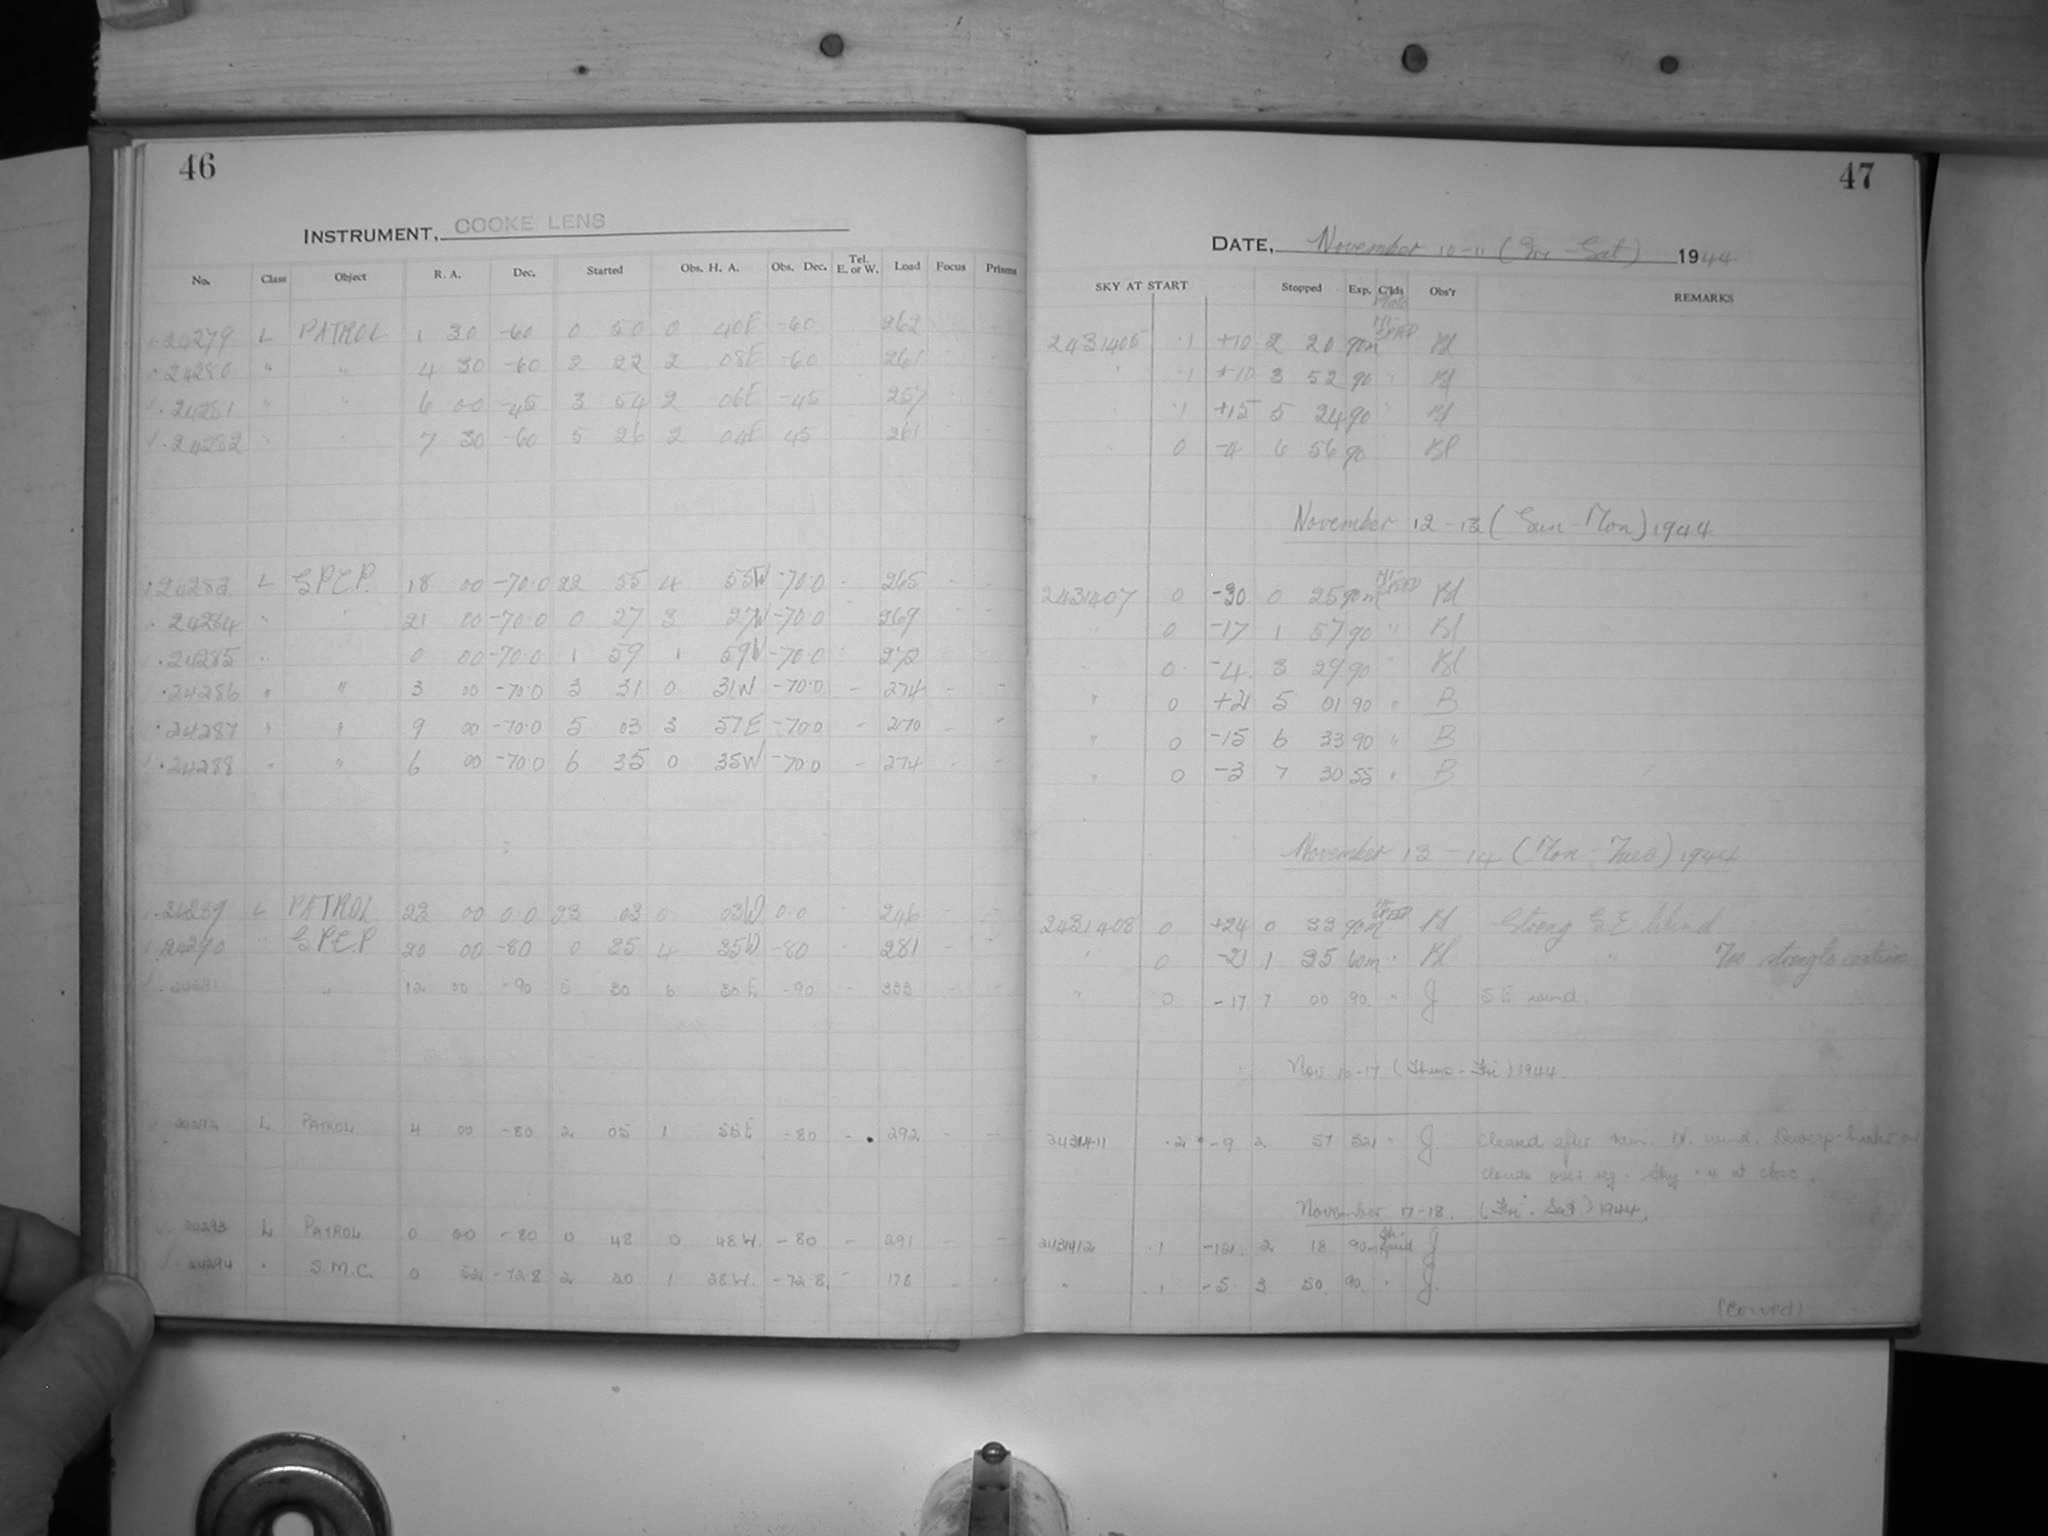 46
INSTRUMENT, COOKE LENS
No. Class Object R. A. Dec. Started Obs. H. A. Obs. Dec. Tel. E. or W. Load Focus Prisms
24279 L PATROL 1 30 -60 0 50 0 40E -60 262
24280 " " 4 30 -60 2 22 2 08E -60 261
24281 " " 6 00 -45 3 54 2 06E -45 257
24282 " " 7 30 -60 5 26 2 04E 45 261
24283 L S.P.C.P. 18 00 -70.0 22 55 4 55W -70.0 - 265 - -
24284 " " 21 00 -70.0 0 27 3 27W -70.0 269
24285 " 0 00 -70.0 1 59 1 59W -70.0 272
24286 " " 3 00 -70.0 3 31 0 31W -70.0 - 274 - -
24287 " " 9 00 -70.0 5 03 3 57E -70.0 - 270 - -
24288 " " 6 00 -70.0 6 35 0 35W -70.0 - 274 - -
24289 L PATROL 23 00 0.0 23 03 0 03W 0.0 246
24290 " S.P.C.P 20 00 -80 0 35 4 35W -80 - 281 - -
24291 " 12 00 -90 5 30 6 30E -90 - 333 - -
24292 L PATROL 4 00 -80 2 05 1 55E -80 - 292 - -
24293 L PATROL 0 00 -80 0 48 0 48W. -80 - 291 - -
24294 " S.M.C. 0 52 -72.8 2 20 1 28W. -72.8 - 178 - -
47
DATE, November 10-11 (Fri - Sat) 1944
SKY AT START Stopped Exp. C'lds Obs'r REMARKS
2431405 .1 +10 2 20 90m HI-SPEED Bl
" .1 +10 3 52 90 " Bl
" .1 +15 5 24 90 " Bl
" 0 -4 6 56 90 Bl
November 12-13 (Sun-Mon) 1944
2431407 0 -30 0 25 90m HI-SPEED Bl
" 0 -17 1 57 90 " Bl
" 0 -4 3 29 90 " Bl
" 0 +21 5 01 90 " B
" 0 -15 6 33 90 " B
" 0 -3 7 30 55 " B
November 13-14 (Mon-Tues) 1944
2431408 0 +24 0 33 90m HI-SPEED Bl Strong S.E. Wind
" 0 -21 1 35 60m " Bl " Too strong to continue
" 0 -17 7 00 90. " J S E wind.
Nov 16-17 (Thurs-Fri) 1944.
2431411 .2 -9 2 57 52 " J Cleared after rain. N. wind.
Clouds over reg. Sky at close.
November 17-18. (Fri-Sat) 1944.
2431412 .1 2 18 90m J
" .1 -5 3 50. 90. " J
(Contd)